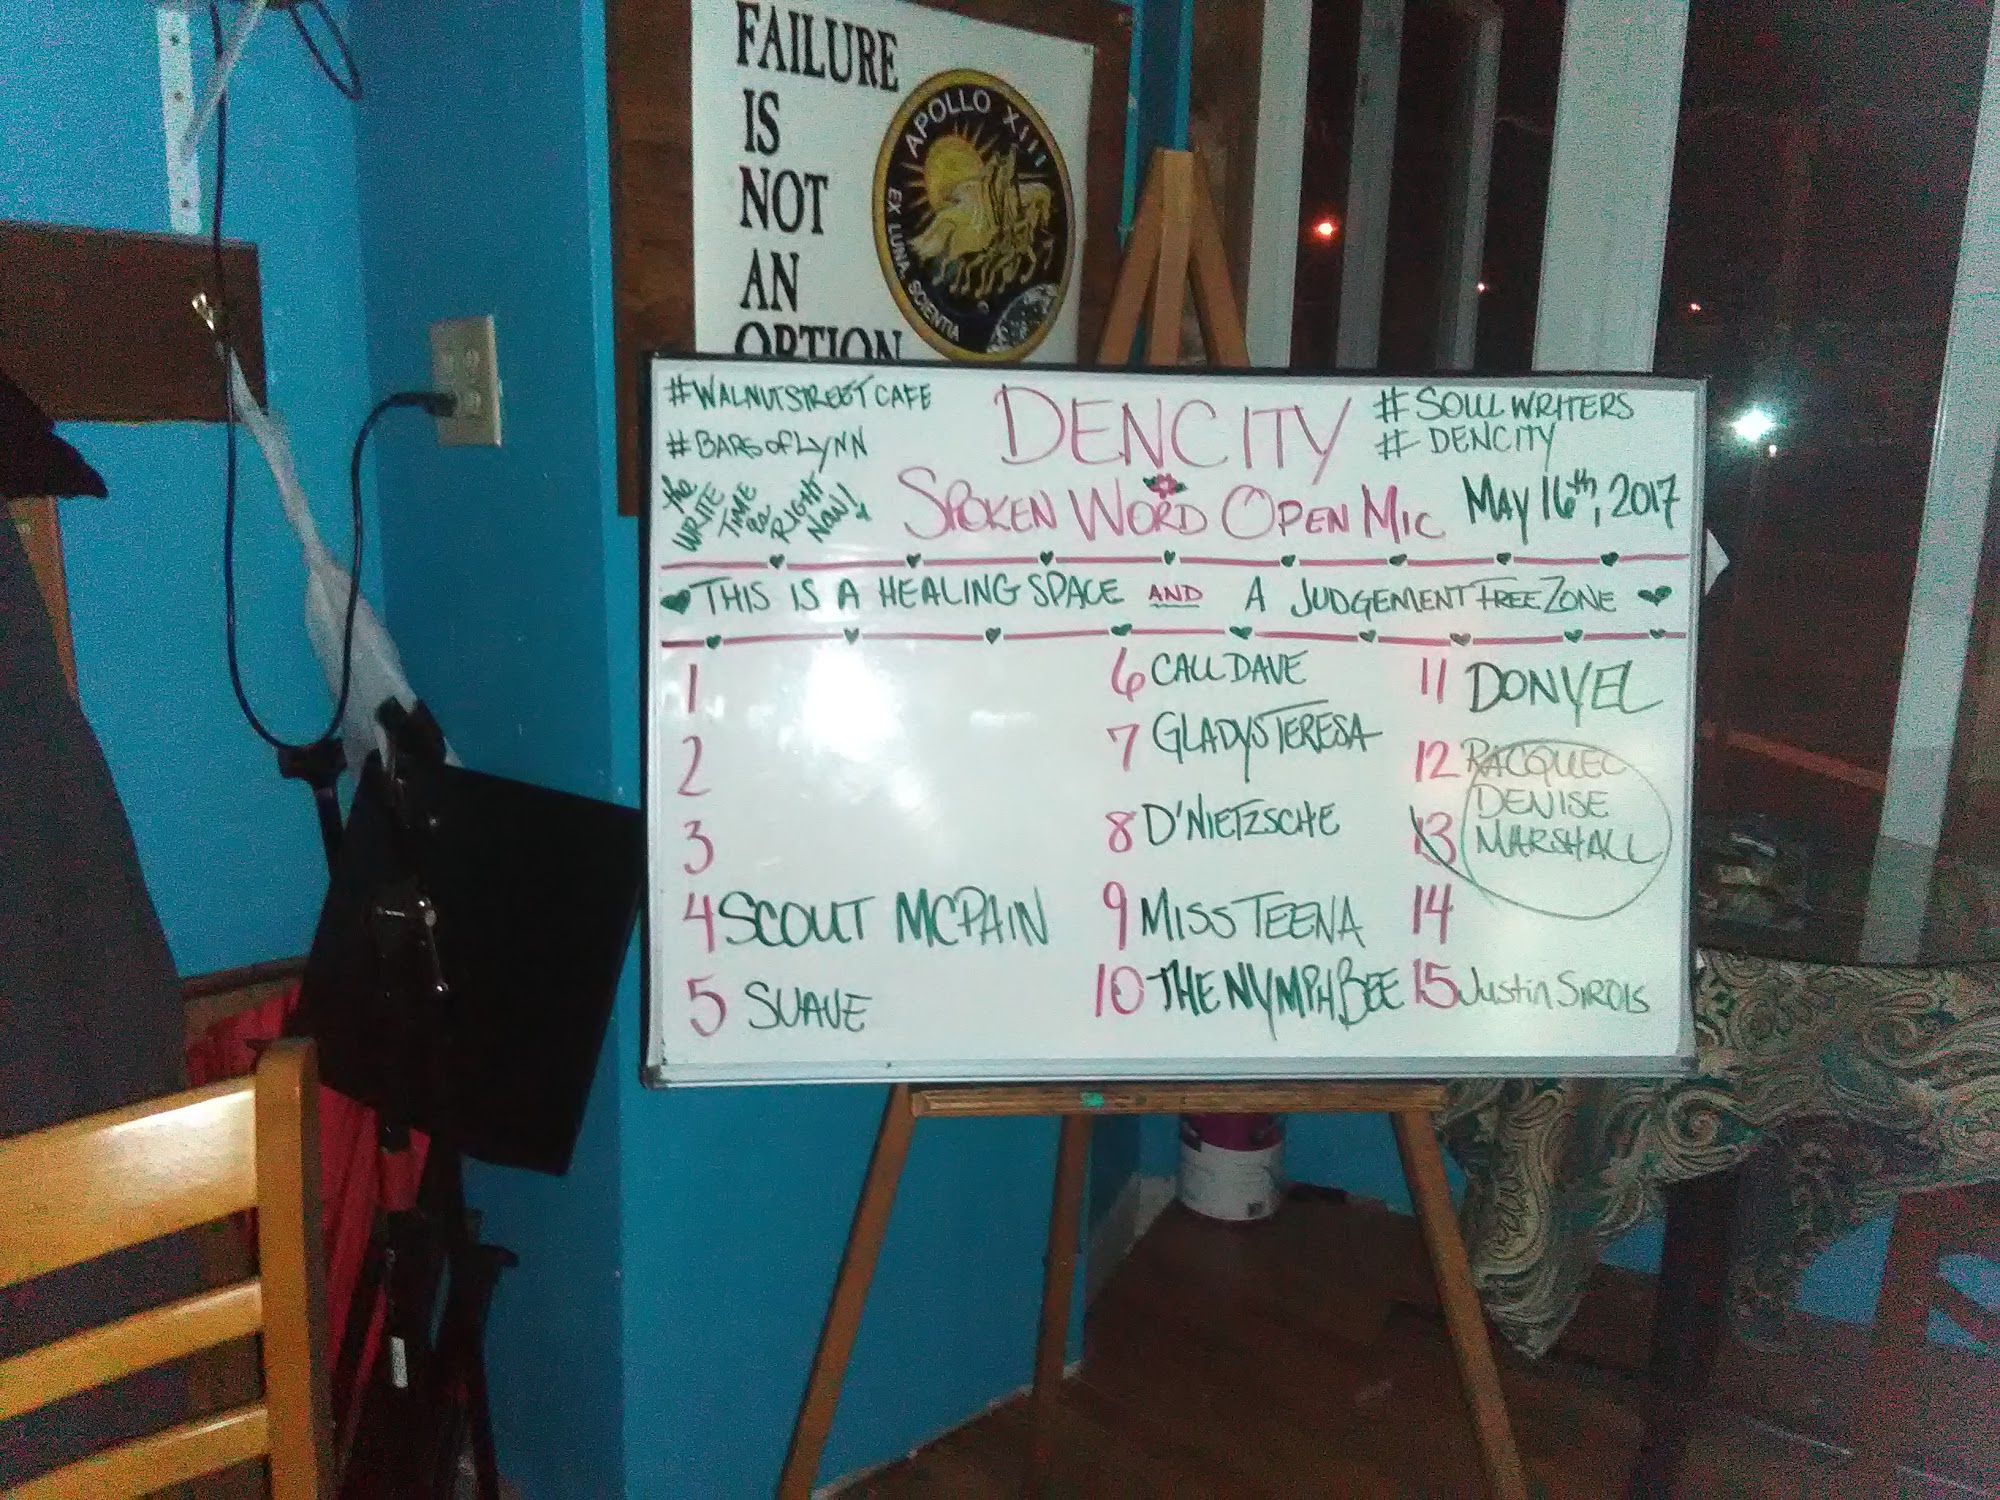 FAILURE
IS
NOT
AN
OPTION
APOLLO XIII
EX LUNA, SCIENTIA
#WALNUTSTREETCAFE
#BARSOFLYNN
DENCITY
#SOULWRITERS
#DENCITY
THE
WRITE
TIME
IS
RIGHT
NOW!
SPOKEN WORD OPEN MIC
MAY 16th, 2017
THIS IS A HEALING SPACE AND A JUDGEMENT FREE ZONE
1
2
3
4 SCOUT MCPAIN
5 SUAVE
6 CALL DAVE
7 GLADYS TERESA
8 D'NIETZSCHE
9 MISS TEENA
10 THE NYMPH BEE
11 DONYEL
12 RACQUEL
DENISE
13 MARSHALL
14
15 Justin SIROIS